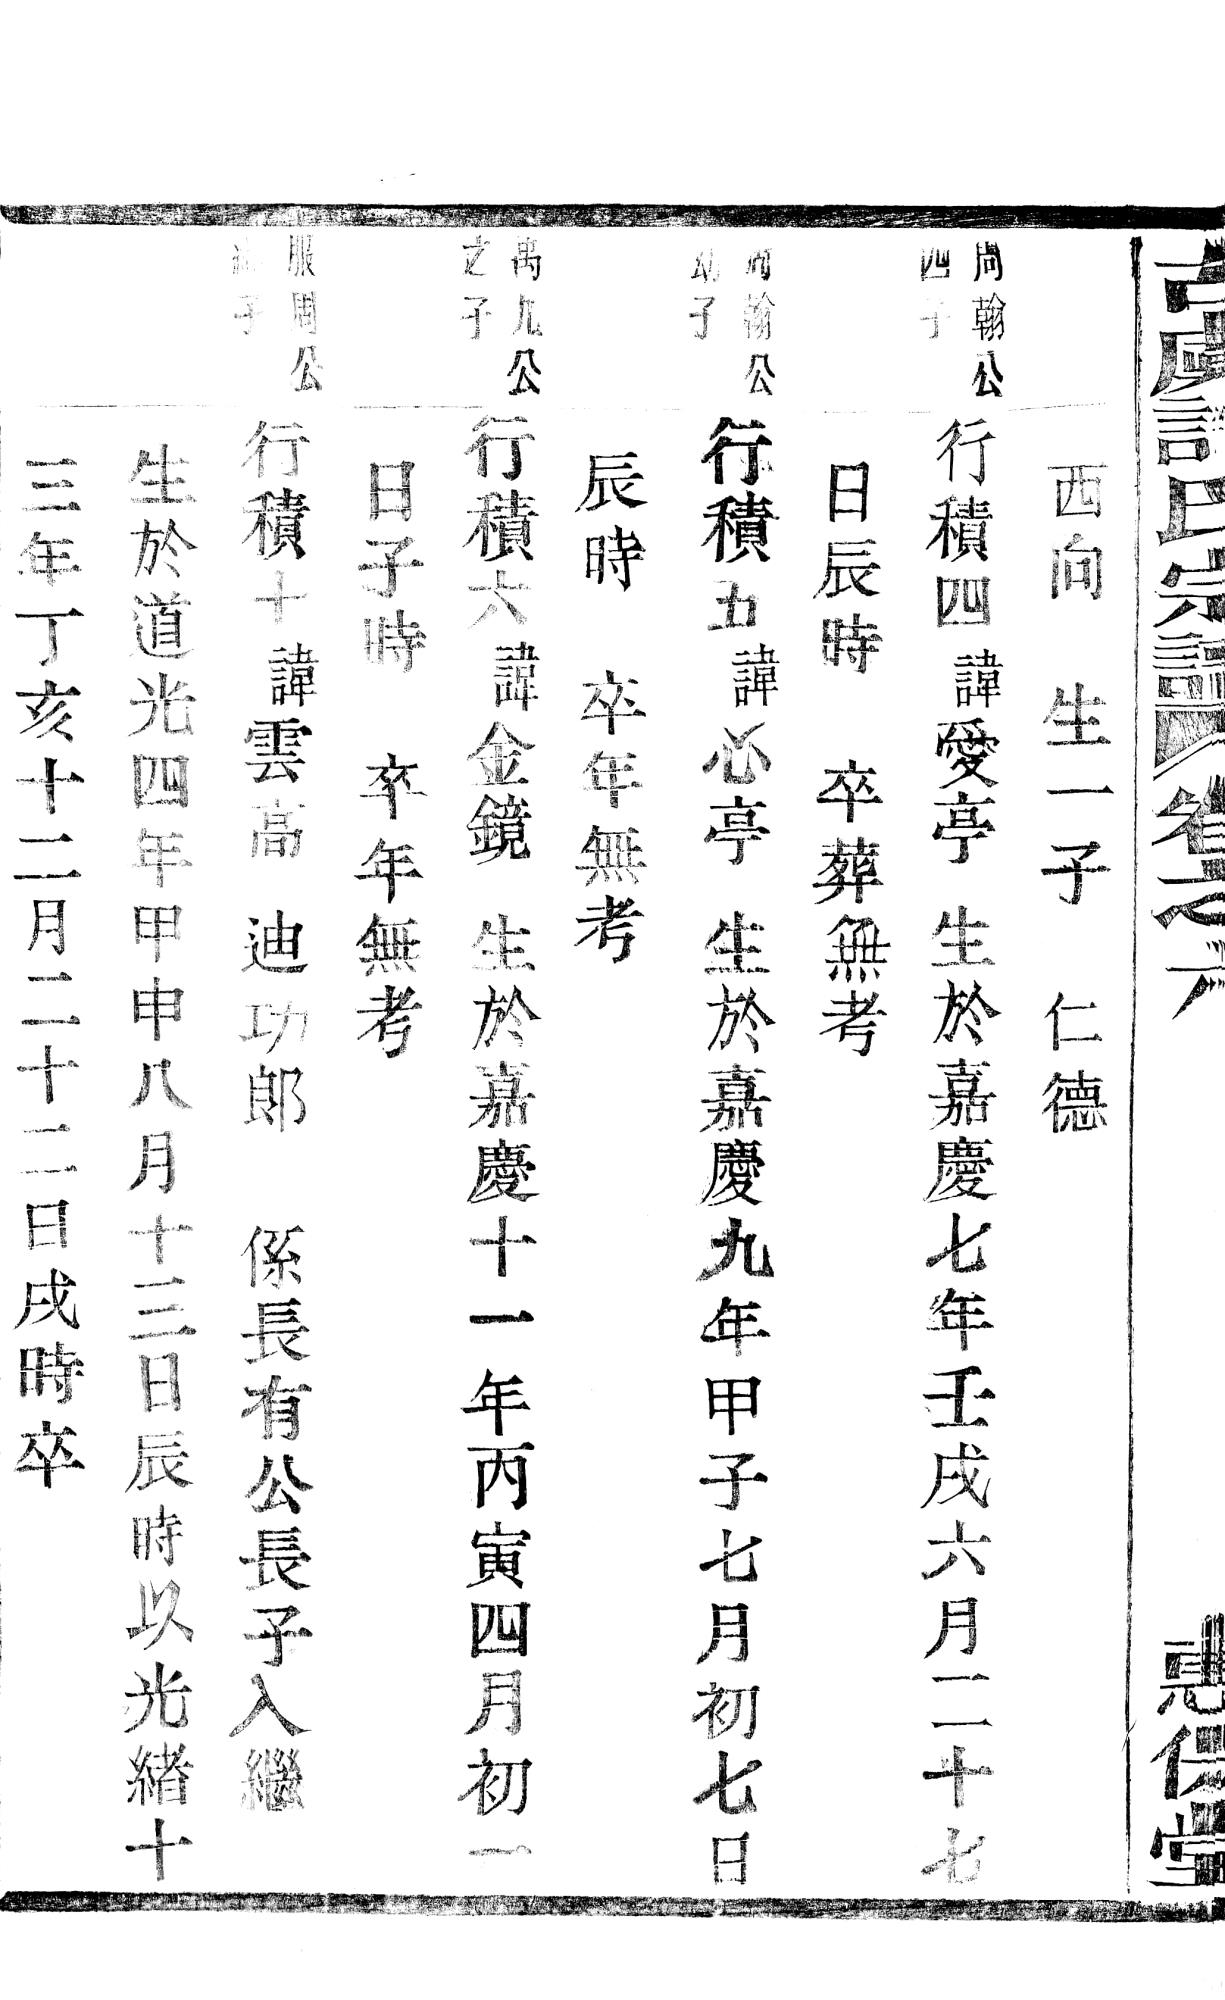 氏宗譜 卷之
西向 生一子 仁德
周翰公四子
行積四諱愛亭 生於嘉慶七年壬戌六月二十七
日辰時 卒葬無考
周翰公幼子
行積五諱心亭 生於嘉慶九年甲子七月初七日
辰時 卒年無考
萬九公之子
行積六諱金鏡 生於嘉慶十一年丙寅四月初一
日子時 卒年無考
服周公子
行積十諱雲高 迪功郎 係長有公長子入繼
生於道光四年甲申八月十三日辰時以光緒十
三年丁亥十二月二十二日戌時卒